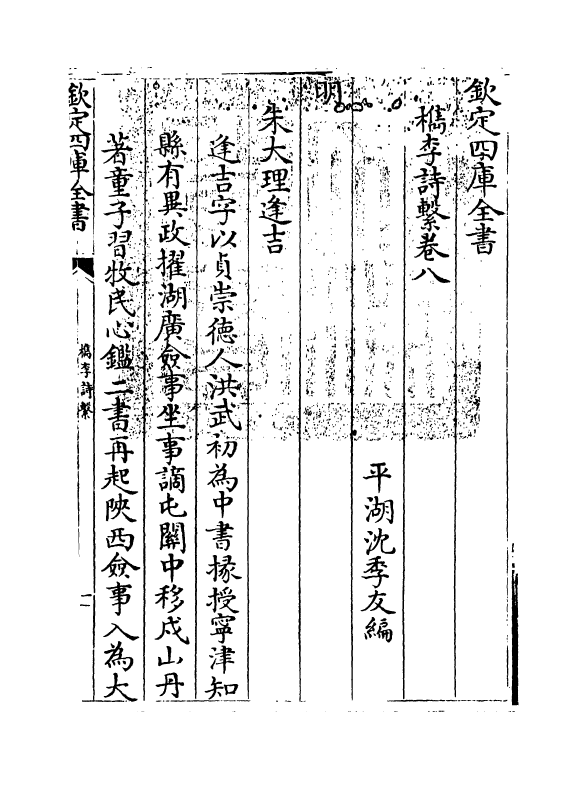 欽定四庫全書
檇李詩繫卷八
平湖沈季友編
明
朱大理逢吉
逢吉字以貞崇德人洪武初為中書掾授寧津知
縣有異政擢湖廣僉事坐事謫屯關中移戍山丹
著童子習牧民心鑑二書再起陜西僉事入為大
欽定四庫全書
檇李詩繫
一